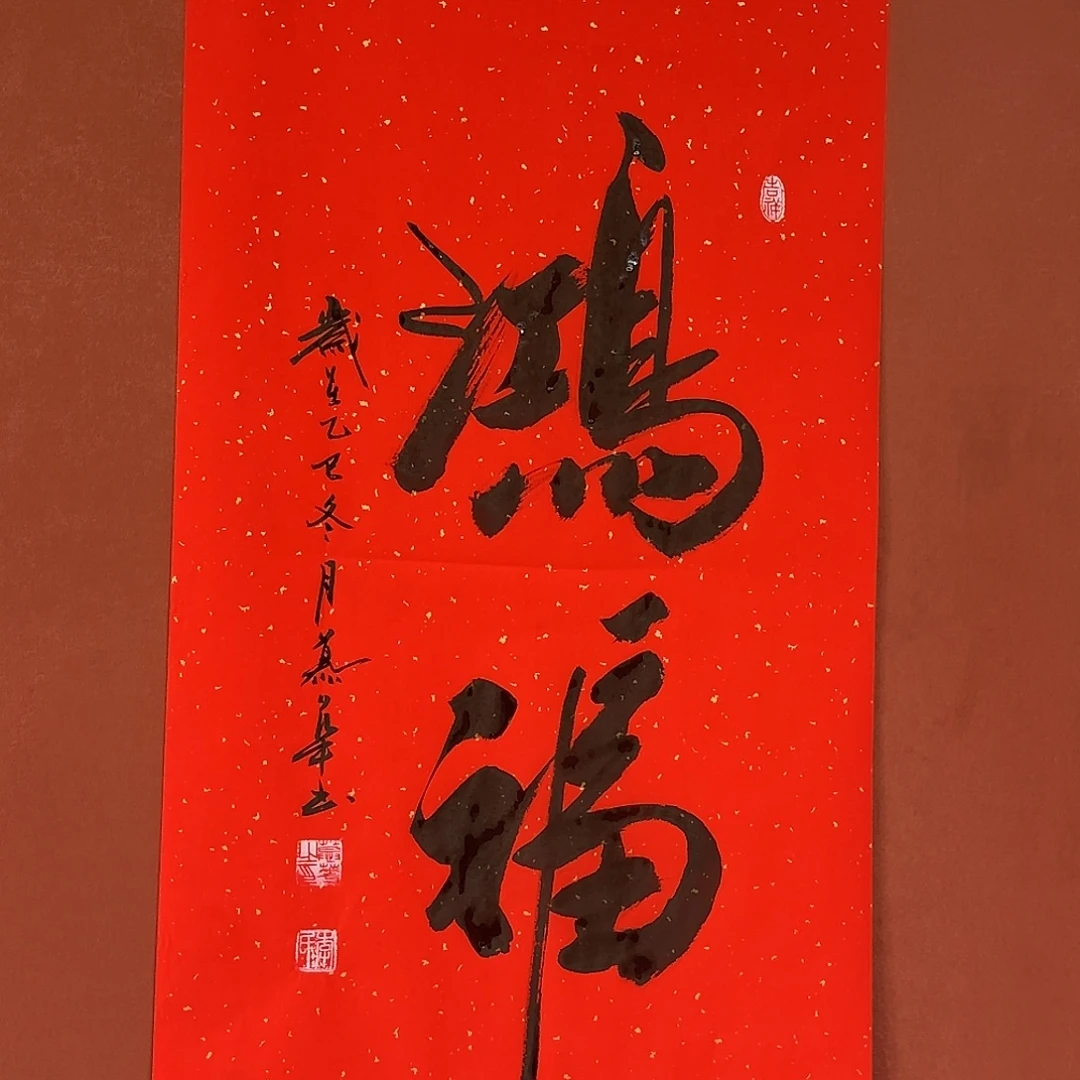 鴻福
歲在乙巳冬月慕華书